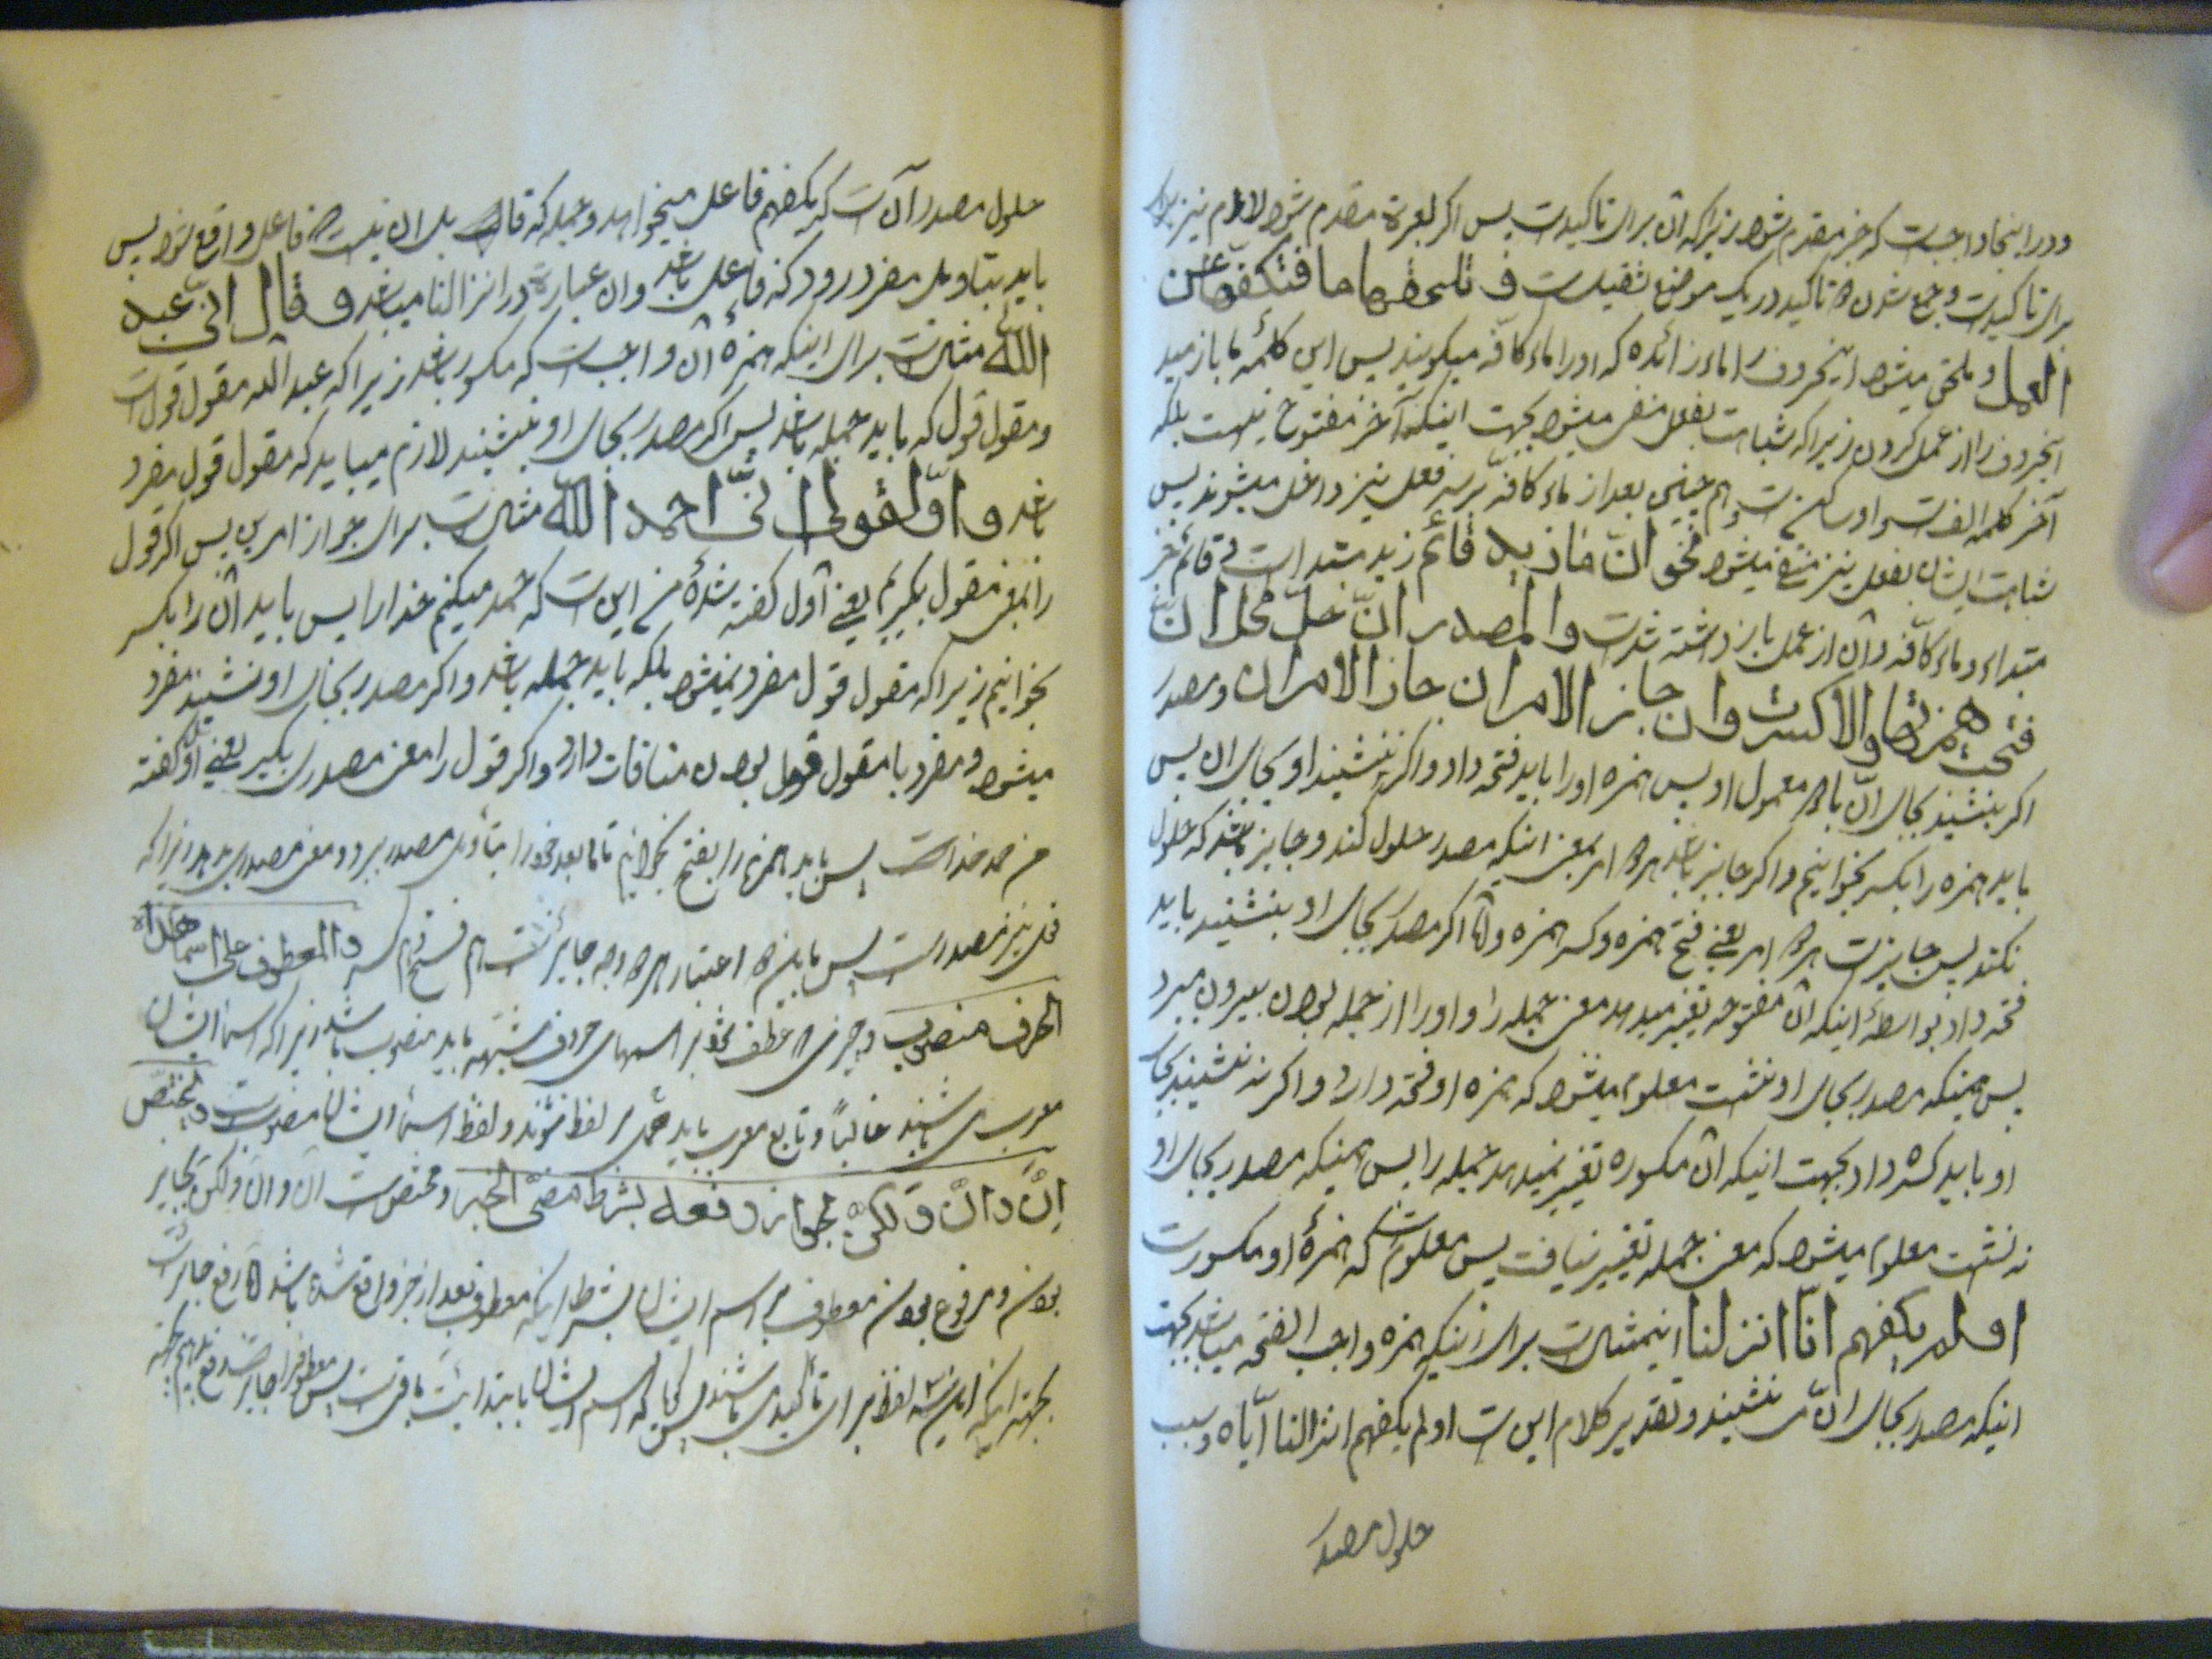 ودر اینجا واجبست که خبر مقدم شود زیرا که آن برای تاکیدست پس اگر مقدم شود لام نیز
برای تاکیدست وجمع شدن دو تاکید در یک موضع ثقیلست و تلحقها ما فتکفها عن
العمل و ملحق میشود اینحروف را ماء زائده که او را ماء کافه میگویند پس این کلمه ما باز میدارد
آنحروف را از عمل کردن زیرا که شباهت بفعل میشود بجهت اینکه آخر مفتوح نیست بلکه
آخر کلمه الفست و او ساکن است و هم چنین بعد از ماء کافه بر سر فعل نیز داخل میشوند پس
شباهت ایشان بفعل نیز منتفی میشود نحو انّ ما زید قائم زید مبتداست و قائم خبر
مبتداء و ماء کافه و آن از عمل باز داشته شدست والمصدر ان حلّ محل انّ
فتحت همزتها والا کسرت وان جاز الامران جاز الامران و مصدر
اگر بنشیند بجای انّ با معمول او پس همزه او را باید فتحه داد و اگر ننشیند او بجای ان پس
باید همزه را بکسر بخوانیم و اگر جایز باشد هر دو امر بمعنی اینکه مصدر حلول کند و جایز باشد که حلول
نکند پس جایزست هر دو امر یعنی فتح همزه و کسر همزه و امّا اگر مصدر بجای او بنشیند باید
فتحه داد بواسطهٔ اینکه انّ مفتوحه تغییر میدهد معنی جمله را و او را از جمله بودن بیرون میبرد
پس همینکه مصدر بجای او نشست معلوم میشود که همزه او فتحه دارد و اگر نه نشیند بجای
او باید کسره داد بجهت اینکه انّ مکسوره تغییر نمیدهد جمله را پس همینکه مصدر بجای او
نه نشست معلوم میشود که معنی جمله تغییر نیافت پس معلوم شد که همزهٔ او مکسورست
اولم یکفهم انّا انزلنا اینمثالست برای اینکه همزه واجب الفتحه میباشد بجهت
اینکه مصدر بجای انّ می نشیند و تقدیر کلام این ست اولم یکفهم انزالنا ایّاه و سبب
حلول مصدر
حلول مصدر آن ست که یکفهم فاعل میخواهد و جمله که قابل ان نیست که فاعل واقع شود پس
باید بتاویل مفرد رود که فاعل باشد وان عبارة در انزالنا میباشد و قال انّی عبد
اللّه مثالست برای اینکه همزهٔ انّ واجبست که مکسور باشد زیرا که عبد الله مقول قولست
و مقول قول که باید جمله باشد پس اگر مصدر بجای او بنشیند لازم میاید که مقول قول مفرد
باشد و اوّل قولی انّی احمد اللّه مثالست برای جواز امرین پس اگر قول
را بمعنی مقول بگیریم یعنی اول گفته شدهٔ من این ست که حمد میکنم خدا را پس باید انّ را بکسر
بخوانیم زیرا که مقول قول مفرد نمیشود بلکه باید جمله باشد و اگر مصدر بجای او نشیند مفرد
میشود و مفرد با مقول قول بودن منافات دارد و اگر قول را معنی مصدری بگیر یعنی اوّل گفته
من حمد خداست پس باید همزه را بفتح بخوانیم تا ما بعد خود را بتاویل مصدر برد و معنی مصدری بدهد زیرا که
قول نیز مصدرست پس باین دو اعتبار هر دو وجه جایز است هم فتح و هم کسر والمعطوف علی اسماء هذه
الحرف منصوب و چیزی که عطف شود بر اسمهای حروف مشبهه باید منصوب باشد زیرا که اسماء ایشان
معرب می باشند غالباً و تابع معرب باید حمل بر لفظ شوند و لفظ اسماء ایشان منصوبست و یختص
انّ و انّ و لکنّ بجواز رفعه بشرط مضیّ الخبر و مختص ست انّ و انّ و لکن بجایز
بودن و مرفوع بودن معطوف بر اسم ایشان بشرط اینکه معطوف بعد از خبر واقع شده باشد امّا رفع جایزست
بجهت اینکه این سه لفظ برای تأکید می باشند پس بجای که اسم ایشان بابتدائیت باقیست پس معطوف را جایزست رفع